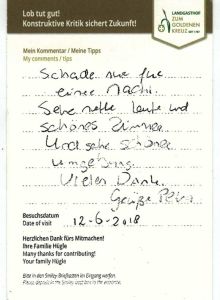 Lob tut gut!
Konstruktive Kritik sichert Zukunft!
LANDGASTHOF
ZUM
GOLDENEN
KREUZ
Mein Kommentar / Meine Tipps
My comments / tips
Schade nur für
eine Nacht.
Sehr nette Leute und
schönes Zimmer.
Und sehr schöne
umgebung.
Vielen Dank.
Besuchsdatum
Date of visit
12-6-2018
Herzlichen Dank fürs Mitmachen!
Ihre Familie Hügle
Many thanks for contributing!
Your family Hügle
Bitte in den Smiley Briefkasten im Eingang werfen.
Please, deposit in the Smiley post box in the entrance.